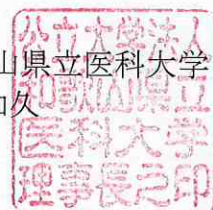 山県立医科大学
久
公立大学法人
和歌山県立
医科大学
理事長之印